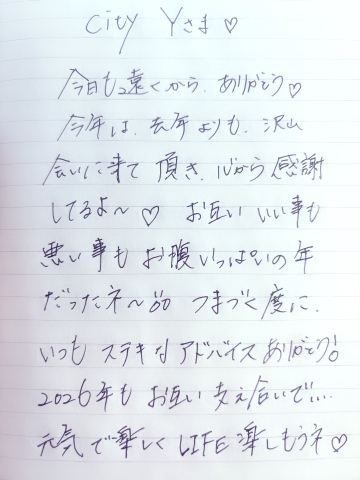 City Yさま♡
今日も遠くから、ありがとう♡
今年は、去年よりも、沢山
会いに来て頂き、心から感謝
してるよ〜♡ お互いいい事も
悪い事もお腹いっぱいの年
だったネ〜 つまづく度に、
いつもステキなアドバイスありがとう!
2026年もお互い支え合いで...
元気で楽しくLIFE楽しもうネ♡